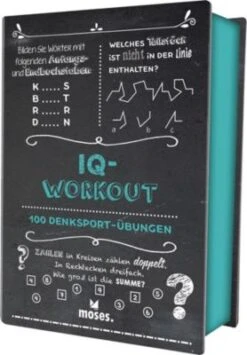 Bilden Sie Wörter mit
folgenden Anfangs-
und Endbuchstaben
K . . . . S
B . . . . T
R . . . . R
D . . . . N
WELCHES Teilstück
IST nicht IN DER Linie
ENTHALTEN?
a b c
IQ-
WORKOUT
100 DENKSPORT-ÜBUNGEN
ZAHLEN in Kreisen zählen doppelt.
In Rechtecken dreifach.
Wie groß ist die SUMME?
moses.